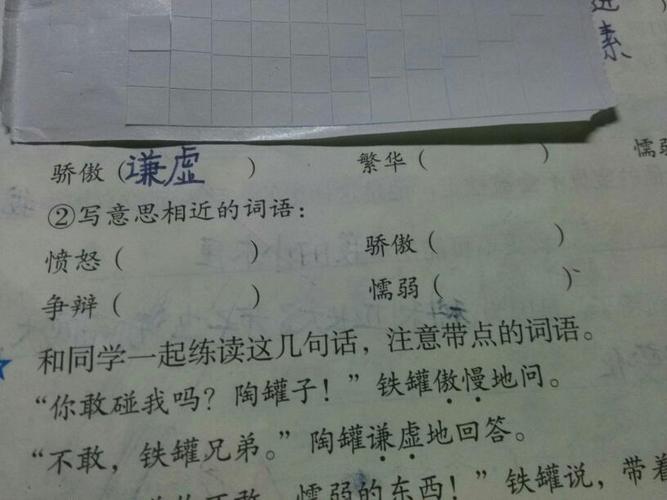 素
骄傲（谦虚）  繁华（  ）  懦弱
②写意思相近的词语：
愤怒（  ）  骄傲（  ）
争辩（  ）  懦弱（  ）
和同学一起练读这几句话，注意带点的词语。
“你敢碰我吗？陶罐子！”铁罐傲慢地问。
“不敢，铁罐兄弟。”陶罐谦虚地回答。
懦弱的东西！”铁罐说，带着